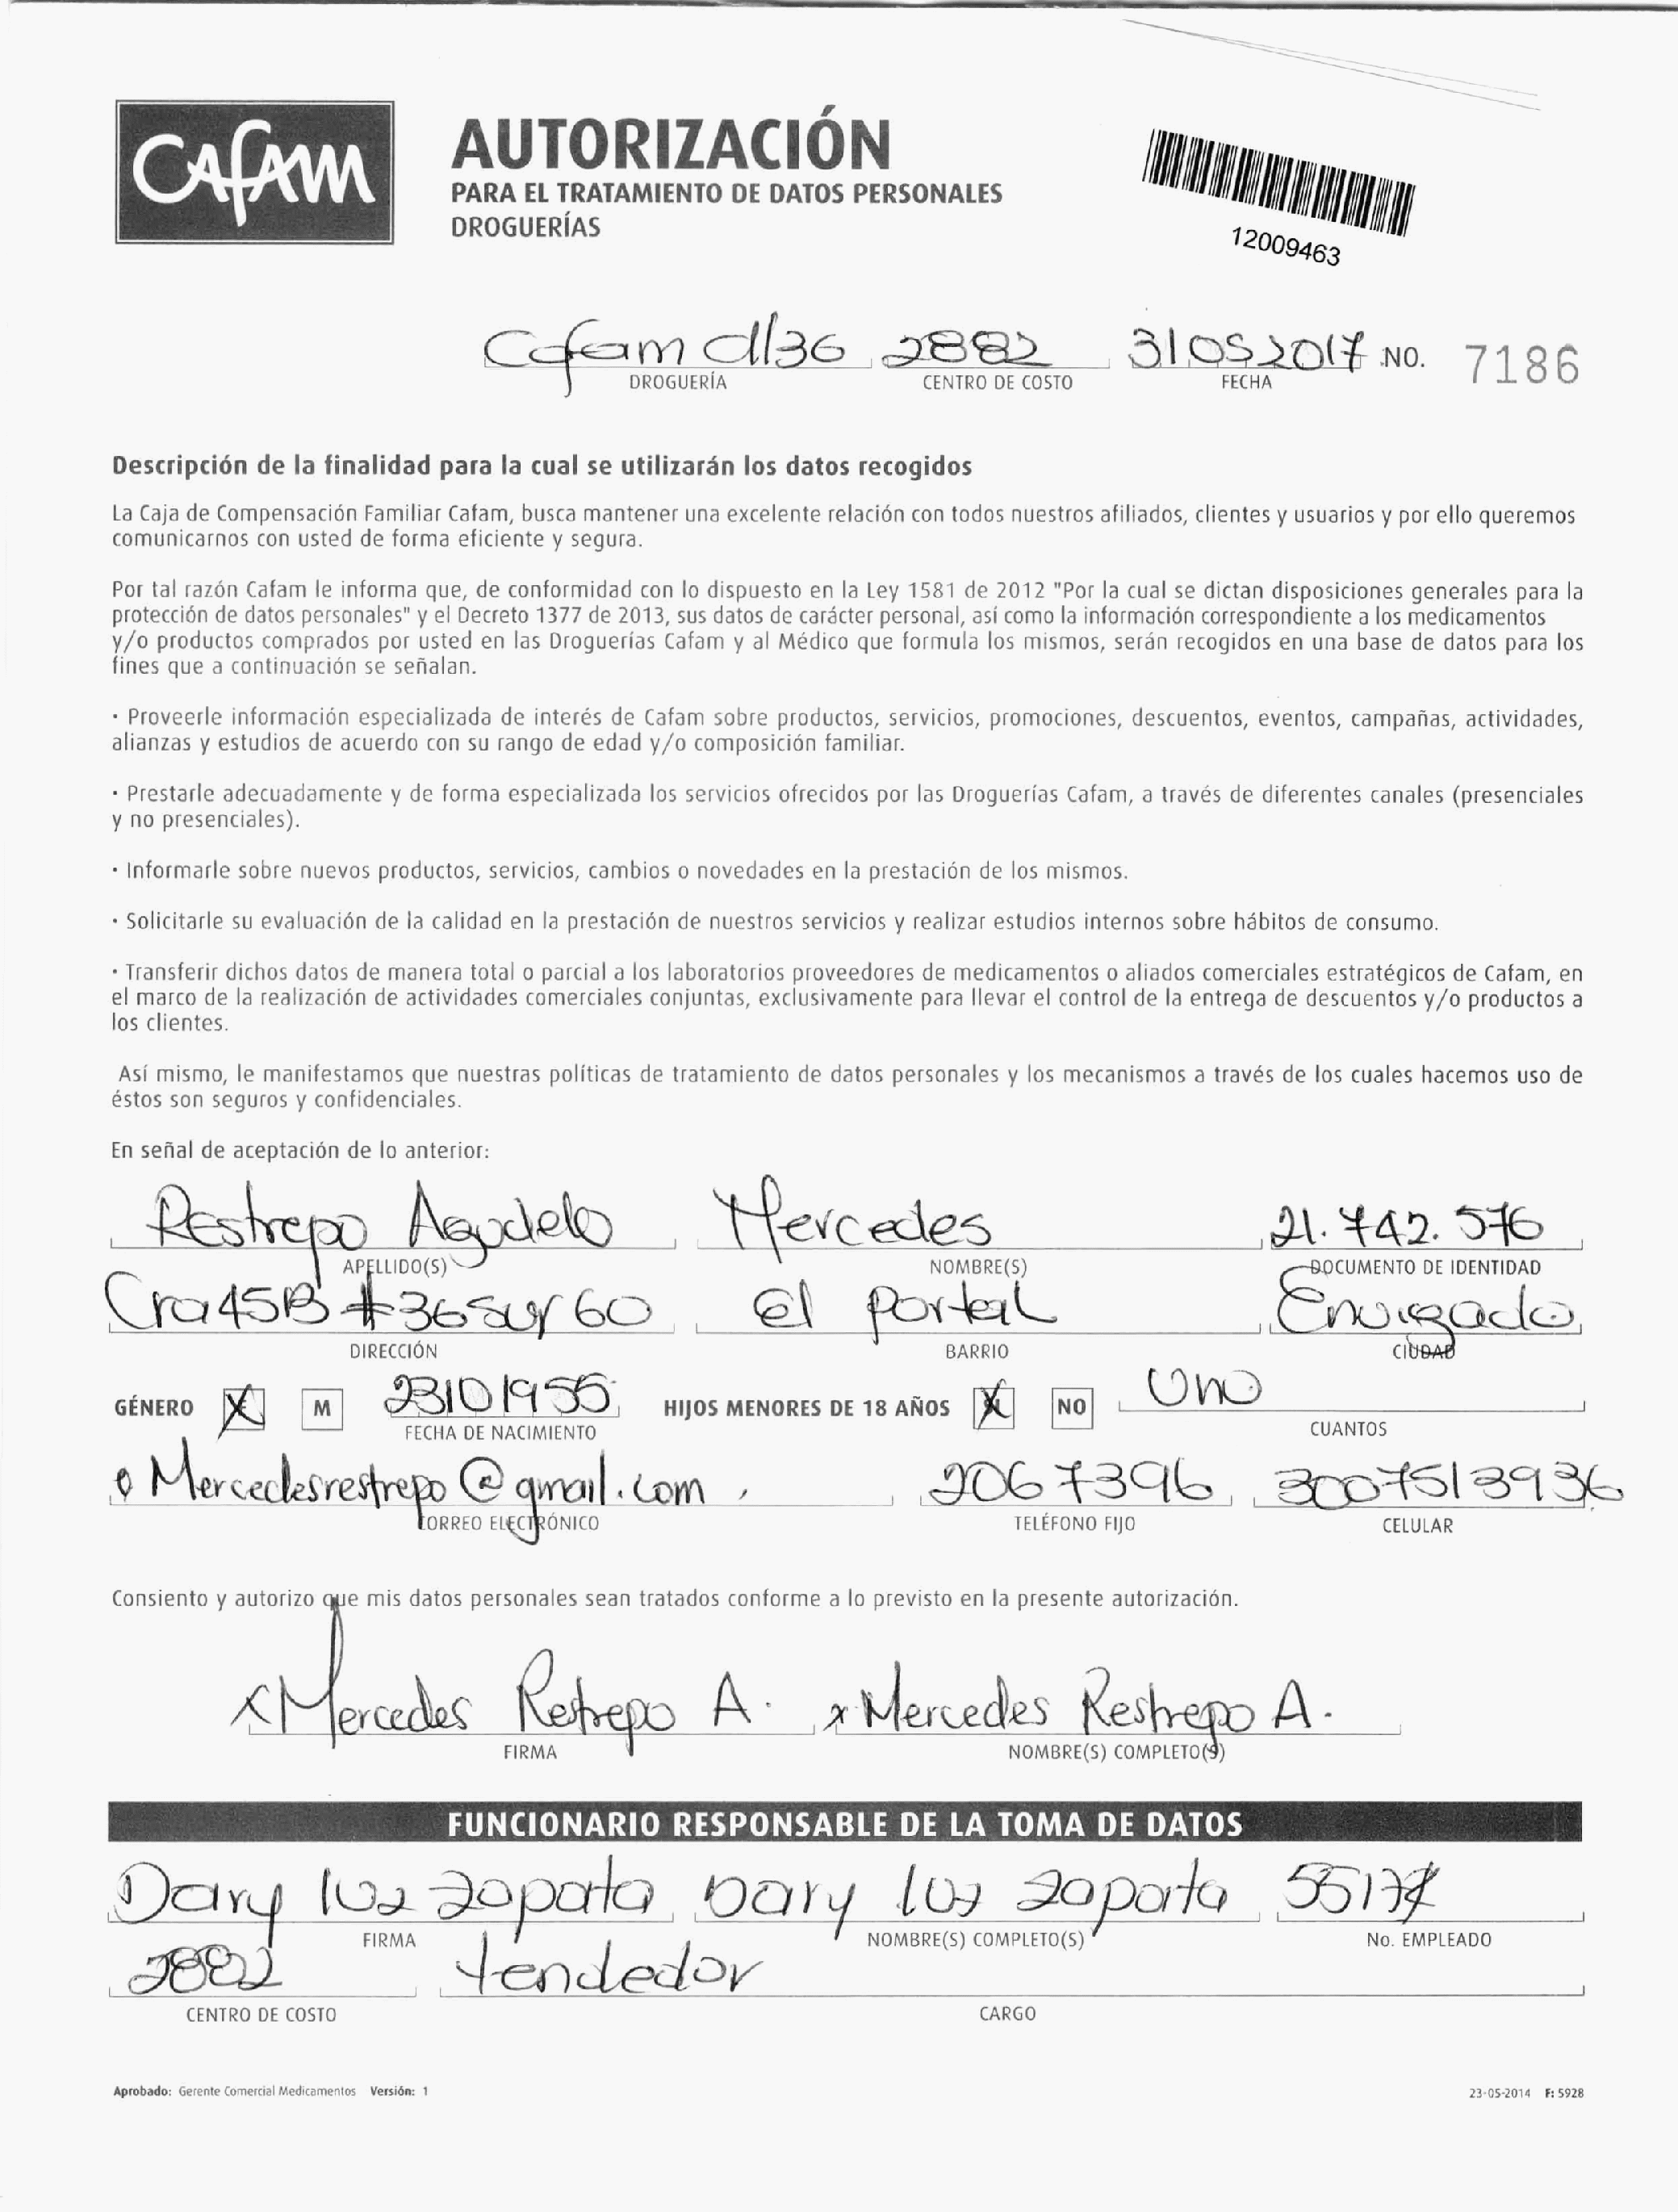 CAFAM
AUTORIZACIÓN
PARA EL TRATAMIENTO DE DATOS PERSONALES
DROGUERÍAS
12009463
Cafam cll36 2882 31052017 NO. 7186
DROGUERÍA CENTRO DE COSTO FECHA
Descripción de la finalidad para la cual se utilizarán los datos recogidos
La Caja de Compensación Familiar Cafam, busca mantener una excelente relación con todos nuestros afiliados, clientes y usuarios y por ello queremos
comunicarnos con usted de forma eficiente y segura.
Por tal razón Cafam le informa que, de conformidad con lo dispuesto en la Ley 1581 de 2012 "Por la cual se dictan disposiciones generales para la
protección de datos personales" y el Decreto 1377 de 2013, sus datos de carácter personal, así como la información correspondiente a los medicamentos
y/o productos comprados por usted en las Droguerías Cafam y al Médico que formula los mismos, serán recogidos en una base de datos para los
fines que a continuación se señalan.
· Proveerle información especializada de interés de Cafam sobre productos, servicios, promociones, descuentos, eventos, campañas, actividades,
alianzas y estudios de acuerdo con su rango de edad y/o composición familiar.
· Prestarle adecuadamente y de forma especializada los servicios ofrecidos por las Droguerías Cafam, a través de diferentes canales (presenciales
y no presenciales).
· Informarle sobre nuevos productos, servicios, cambios o novedades en la prestación de los mismos.
· Solicitarle su evaluación de la calidad en la prestación de nuestros servicios y realizar estudios internos sobre hábitos de consumo.
· Transferir dichos datos de manera total o parcial a los laboratorios proveedores de medicamentos o aliados comerciales estratégicos de Cafam, en
el marco de la realización de actividades comerciales conjuntas, exclusivamente para llevar el control de la entrega de descuentos y/o productos a
los clientes.
Así mismo, le manifestamos que nuestras políticas de tratamiento de datos personales y los mecanismos a través de los cuales hacemos uso de
éstos son seguros y confidenciales.
En señal de aceptación de lo anterior:
Restrepo Agudelo Mercedes 21.742.576
APELLIDO(S) NOMBRE(S) DOCUMENTO DE IDENTIDAD
Cra45B #36sur60 El portal Envigado
DIRECCIÓN BARRIO CIUDAD
GÉNERO X M 23101955 HIJOS MENORES DE 18 AÑOS X NO Uno
FECHA DE NACIMIENTO CUANTOS
Mercedesrestrepo@gmail.com 2067396 3007513936
CORREO ELECTRÓNICO TELÉFONO FIJO CELULAR
Consiento y autorizo que mis datos personales sean tratados conforme a lo previsto en la presente autorización.
x Mercedes Restrepo A. x Mercedes Restrepo A.
FIRMA NOMBRE(S) COMPLETO(S)
FUNCIONARIO RESPONSABLE DE LA TOMA DE DATOS
Dary luz zapata Dary luz zapata
FIRMA NOMBRE(S) COMPLETO(S) No. EMPLEADO
2882 Vendedor
CENTRO DE COSTO CARGO
Aprobado: Gerente Comercial Medicamentos Versión: 1 23-05-2014 F: 5928